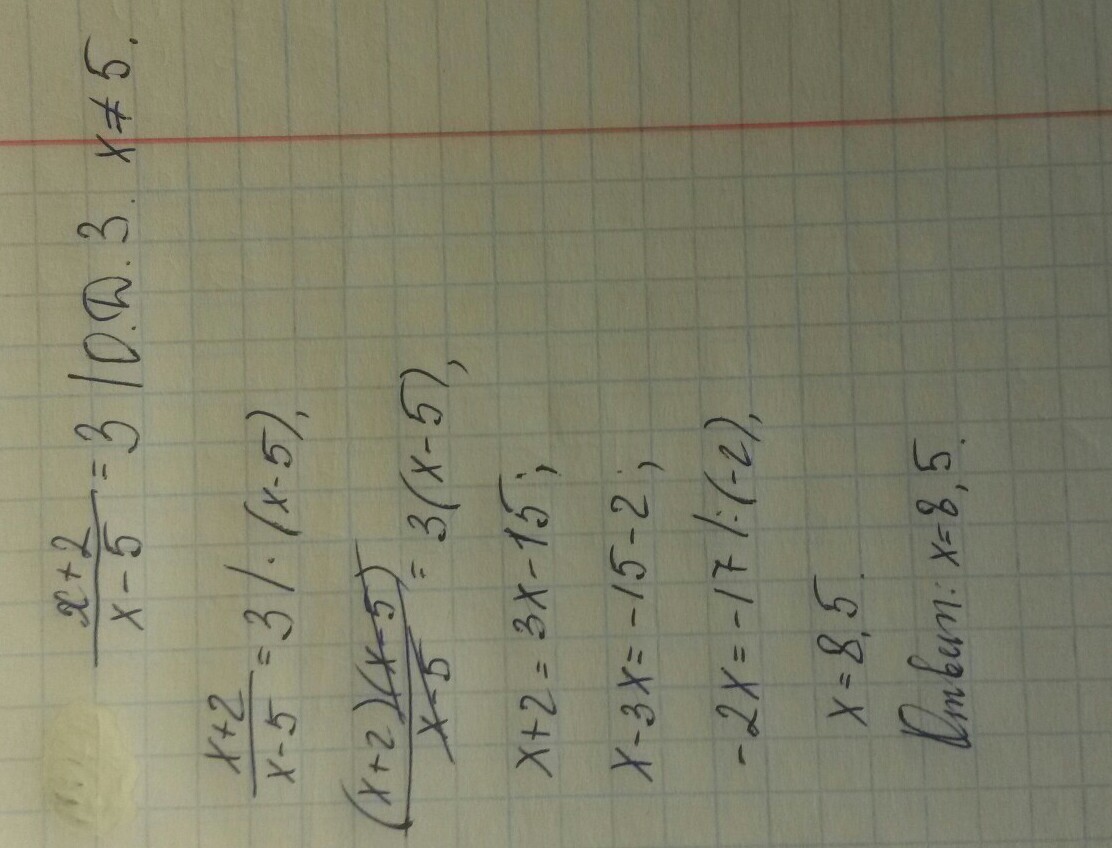 x+2/x-5 = 3 | О.Д.З. x≠5.
x+2/x-5 = 3 | · (x-5),
(x+2)(x-5)/x-5 = 3(x-5),
x+2=3x-15;
x-3x=-15-2;
-2x=-17 | :(-2),
x=8,5.
Ответ: x=8,5.